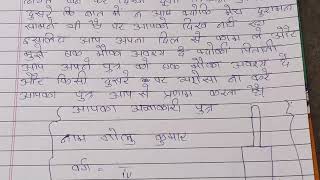 दुसरे कि बात में न आए क्योंकि मेरा दुशमन
सामने की पर आपको दिख नहीं रहा
इसलिए आप अपना दिल से काम ले और
मुझे एक मौका अवश्य दे क्योंकी पिताजी
आप अपने पुत्र को एक मौका अवश्य दें
और किसी दुसरे पर भरोसा ना करे
आपका पुत्र आप से प्रणाम करता है।
आपका आज्ञाकारी पुत्र
नाम गोलु कुमार
वर्ग = IV